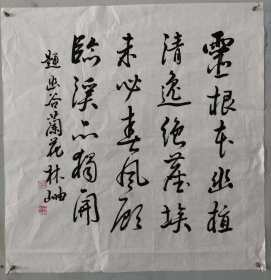 靈根本幽植
清逸絕塵埃
未必春風顧
臨溪亦獨開
題幽谷蘭花 林岫